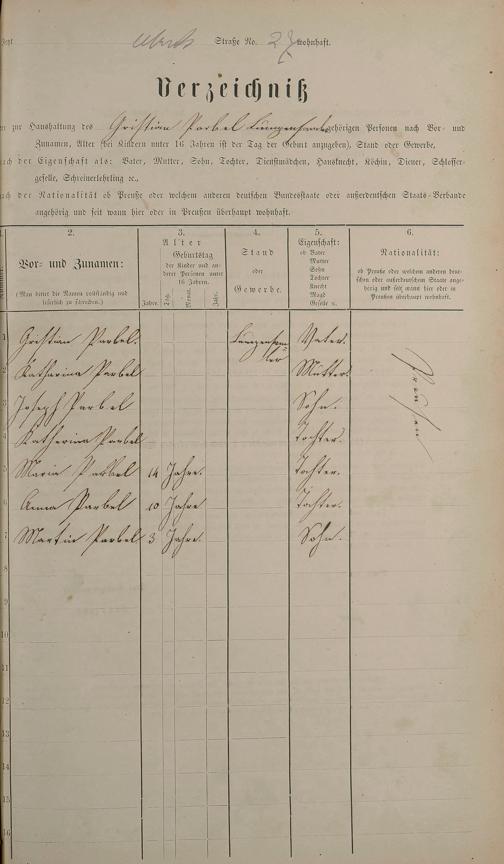 Straße No. 27 wohnhaft.
Verzeichniß
zur Haushaltung des Christian Parbel Lumpensamler gehörigen Personen nach Vor- und
Zunamen, Alter (bei Kindern unter 16 Jahren ist der Tag der Geburt anzugeben), Stand oder Gewerbe,
nach der Eigenschaft als: Vater, Mutter, Sohn, Tochter, Dienstmädchen, Hausknecht, Köchin, Diener, Schlosser-
geselle, Schreinerlehrling ꝛc.,
nach der Nationalität ob Preuße oder welchem anderen deutschen Bundesstaate oder außerdeutschen Staats-Verbande
angehörig und seit wann hier oder in Preußen überhaupt wohnhaft.
2. 3. 4. 5. 6.
Vor- und Zunamen:
(Man bittet die Namen vollständig und
leserlich zu schreiben.)
Alter
Geburtstag
der Kinder und an-
derer Personen unter
16 Jahren.
Jahre. Tag. Monat. Jahr.
Stand
oder
Gewerbe.
Eigenschaft:
ob Vater
Mutter
Sohn
Tochter
Knecht
Magd
Geselle u.
Nationalität:
ob Preuße oder welchem anderen deut-
schen oder außerdeutschen Staate ange-
hörig und seit wann hier oder in
Preußen überhaupt wohnhaft.
1 Christian Parbel. Lumpensam= Vater.
ler
2 Katharina Parbel Mutter.
3 Joseph Parbel Sohn.
4 Katharina Parbel Tochter.
5 Maria Parbel 14 Jahre. Tochter.
6 Anna Parbel 10 Jahre Tochter.
7 Martin Parbel 3 Jahre. Sohn.
Preußen
8
9
10
11
12
13
14
15
16